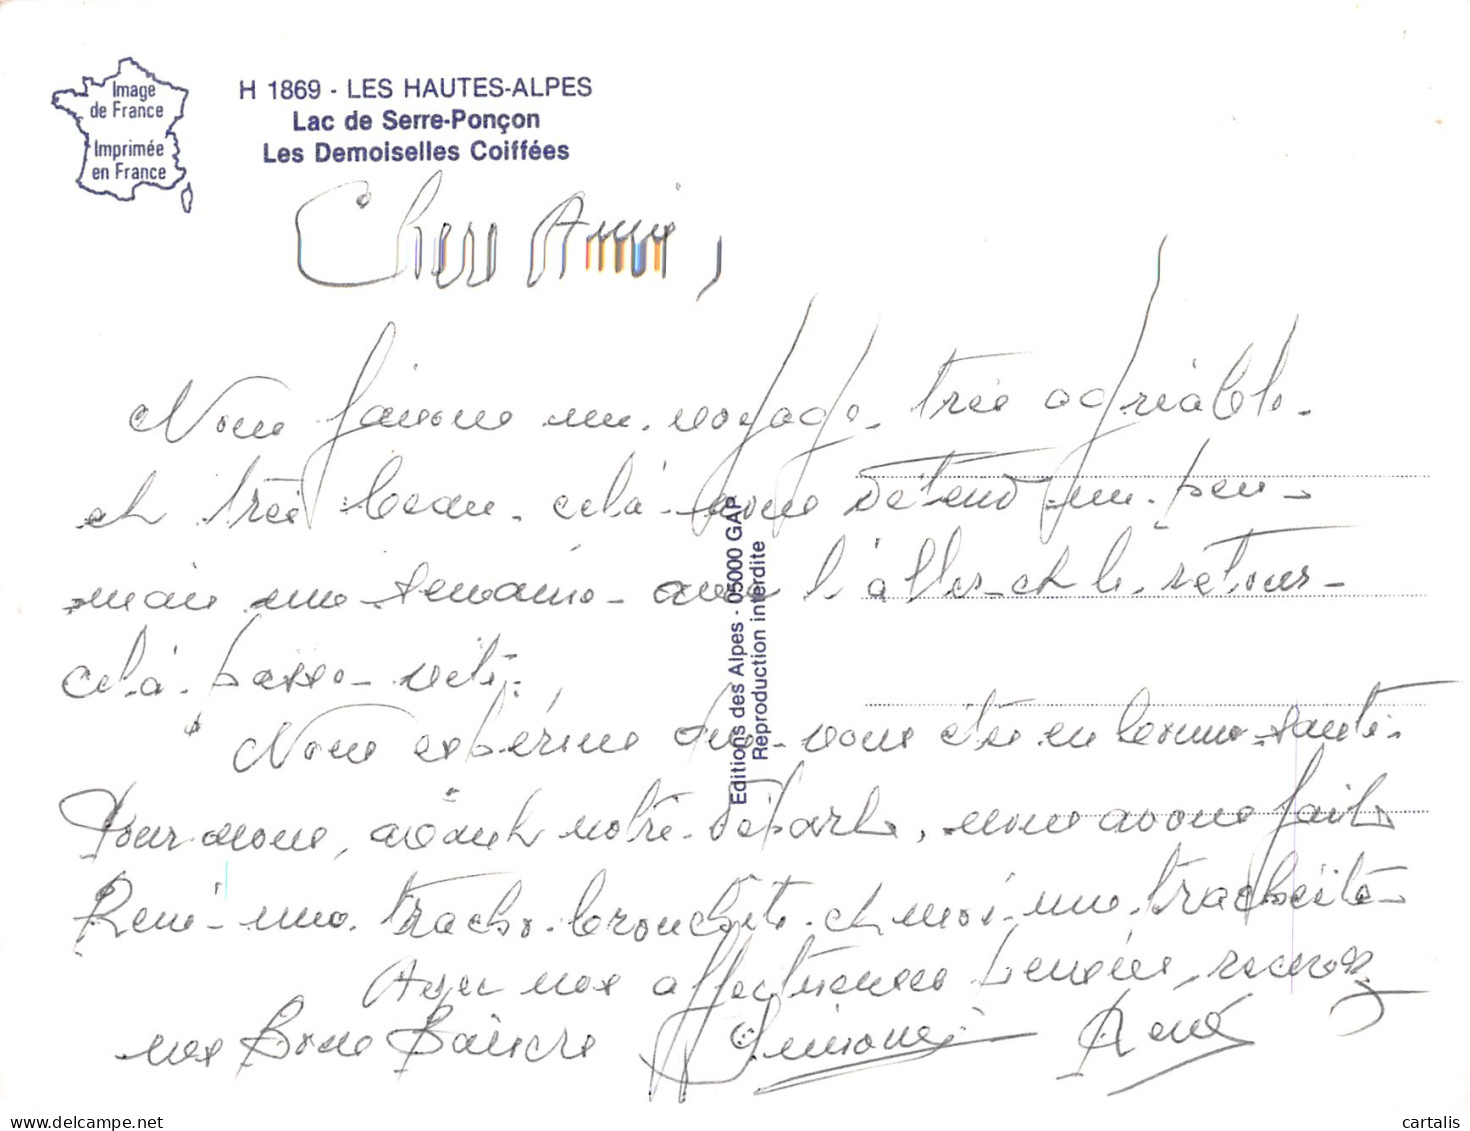 Image
de France
Imprimée
en France
H 1869 - LES HAUTES-ALPES
Lac de Serre-Ponçon
Les Demoiselles Coiffées
Chers Amis,
Nous faisons un voyage très agréable
et très beau celà nous détend un peu
mais une semaine avec l'aller et le retour
celà passe vite.
Nous espérons que vous êtes en bonne santé.
Pour nous, avant notre départ, nous avons fait
René une trachéo bronchite et moi une trachéite
Avec nos affectueuses pensées, recevez
nos Bons Baisers Simone René
Editions des Alpes - 05000 GAP
Reproduction interdite
cartalis
delcampe.net